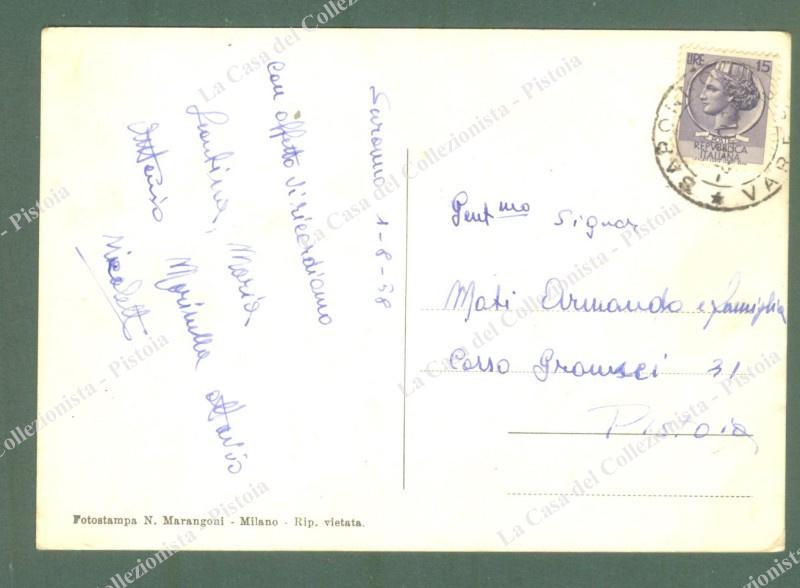 Saronno 1-8-58
con affetto vi ricordiamo
Santina, Maria
Antonio Marinella Ottavio
Nicoletta
LIRE 15
REPUBBLICA
ITALIANA
SARONNO
VARESE
Gent.mo Signor
Mati Armando e famiglia
Corso Gramsci 31
Pistoia
Fotostampa N. Marangoni - Milano - Rip. vietata.
La Casa del Collezionista - Pistoia